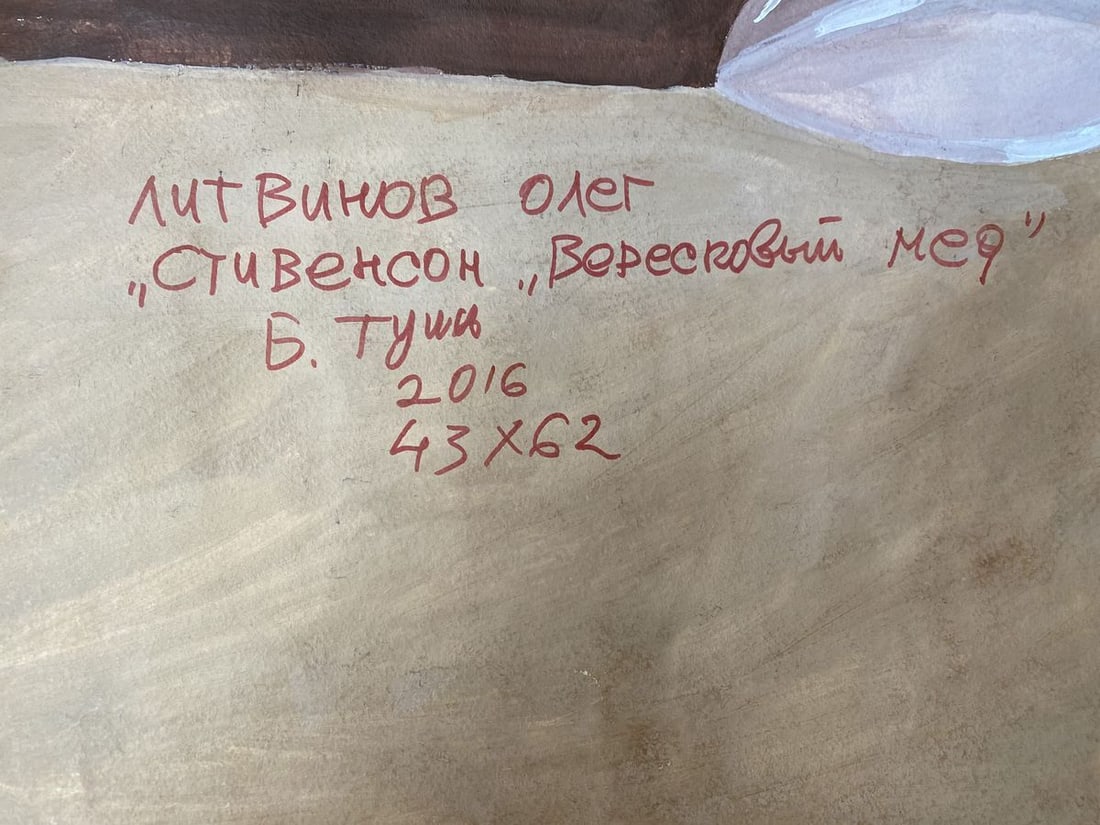 Литвинов Олег
„Стивенсон „Вересковый мед"
Б. Тушь
2016
43x62